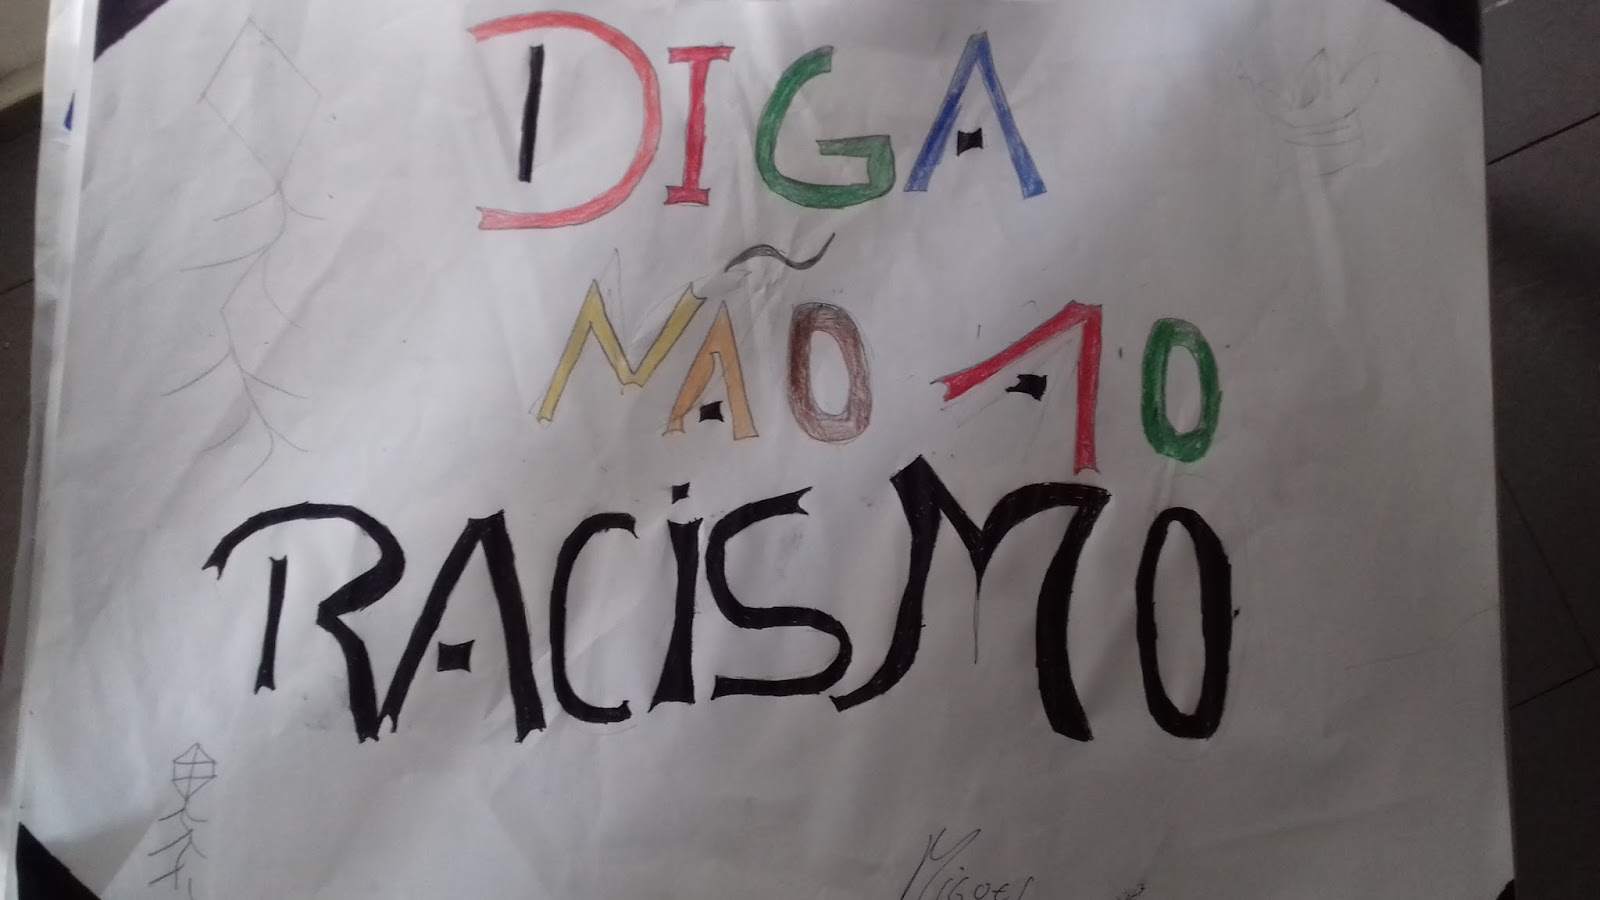 DIGA
NÃO AO
RACISMO
Miguel